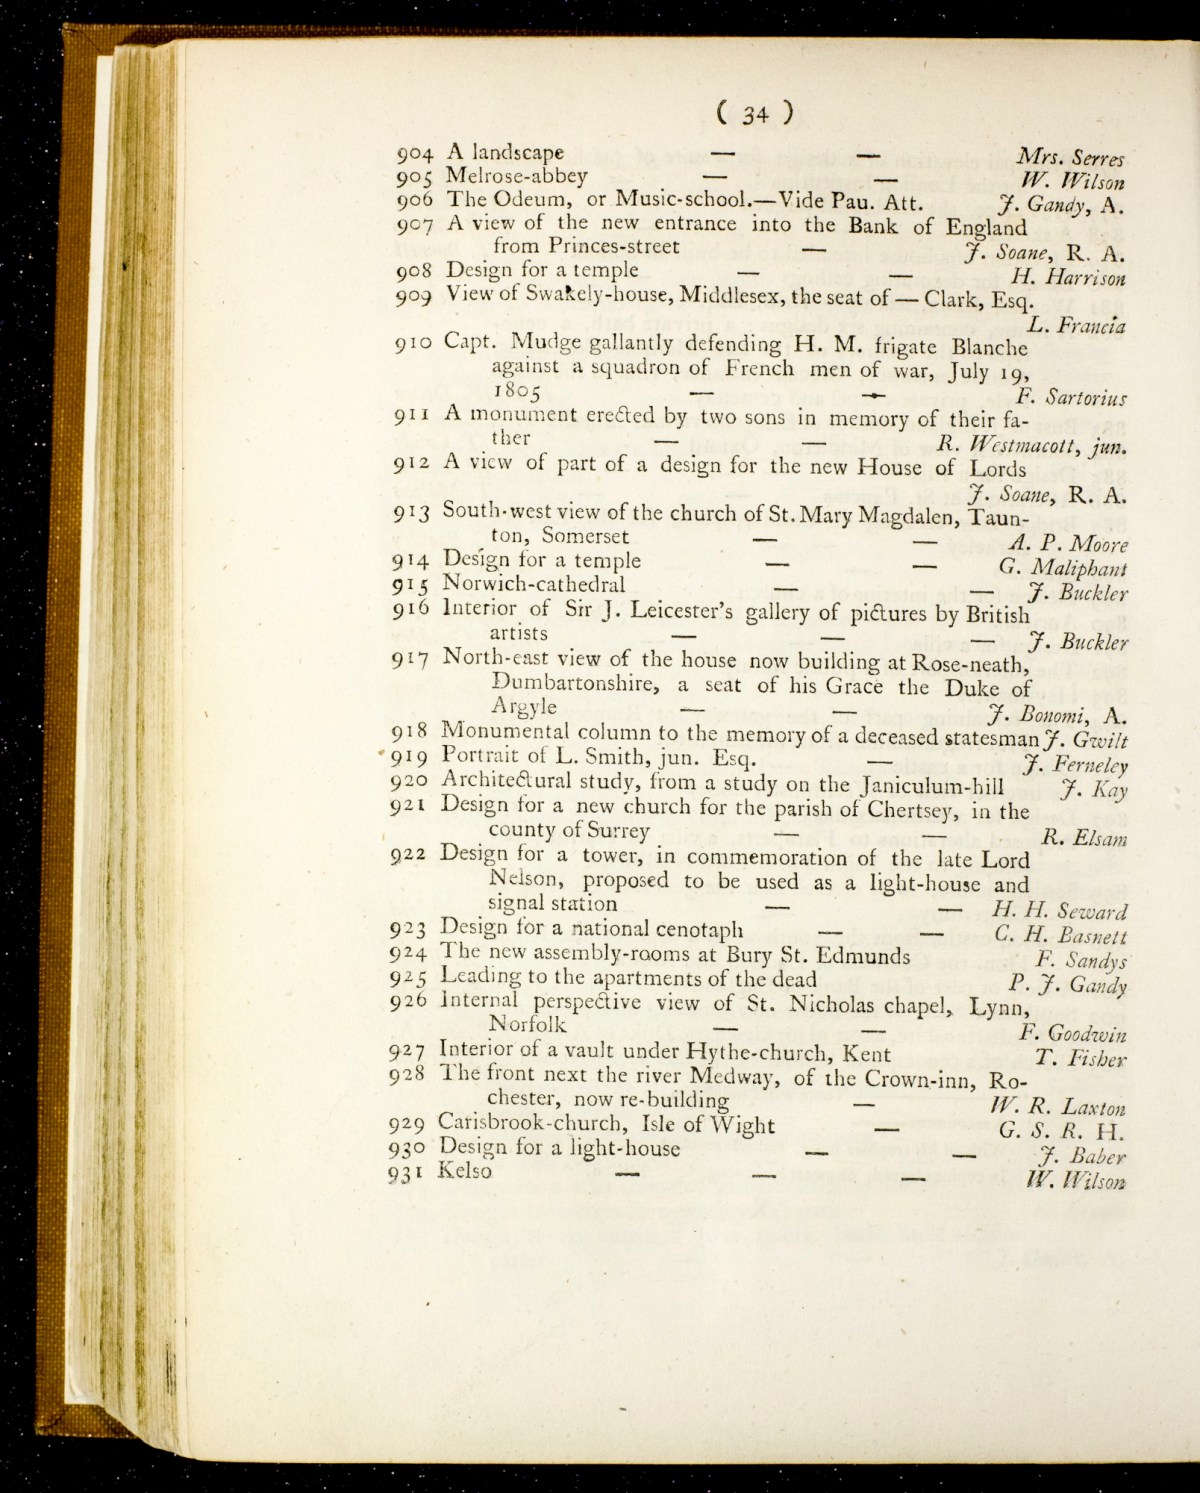 ( 34 )
904 A landscape — — Mrs. Serres
905 Melrose-abbey — — W. Wilson
906 The Odeum, or Music-school.—Vide Pau. Att. J. Gandy, A.
907 A view of the new entrance into the Bank of England
from Princes-street — J. Soane, R. A.
908 Design for a temple — — H. Harrison
909 View of Swakely-house, Middlesex, the seat of — Clark, Esq.
L. Francia
910 Capt. Mudge gallantly defending H. M. frigate Blanche
against a squadron of French men of war, July 19,
1805 — — F. Sartorius
911 A monument erected by two sons in memory of their fa-
ther — — R. Westmacott, jun.
912 A view of part of a design for the new House of Lords
J. Soane, R. A.
913 South-west view of the church of St. Mary Magdalen, Taun-
ton, Somerset — — A. P. Moore
914 Design for a temple — — G. Maliphant
915 Norwich-cathedral — — J. Buckler
916 Interior of Sir J. Leicester's gallery of pictures by British
artists — — — J. Buckler
917 North-east view of the house now building at Rose-neath,
Dumbartonshire, a seat of his Grace the Duke of
Argyle — — J. Bonomi, A.
918 Monumental column to the memory of a deceased statesman J. Gwilt
919 Portrait of L. Smith, jun. Esq. — J. Ferneley
920 Architectural study, from a study on the Janiculum-hill J. Kay
921 Design for a new church for the parish of Chertsey, in the
county of Surrey — — R. Elsam
922 Design for a tower, in commemoration of the late Lord
Nelson, proposed to be used as a light-house and
signal station — — H. H. Seward
923 Design for a national cenotaph — — C. H. Basnett
924 The new assembly-rooms at Bury St. Edmunds F. Sandys
925 Leading to the apartments of the dead P. J. Gandy
926 Internal perspective view of St. Nicholas chapel, Lynn,
Norfolk — — F. Goodwin
927 Interior of a vault under Hythe-church, Kent T. Fisher
928 The front next the river Medway, of the Crown-inn, Ro-
chester, now re-building — W. R. Laxton
929 Carisbrook-church, Isle of Wight — G. S. R. H.
930 Design for a light-house — — J. Baber
931 Kelso — — — W. Wilson